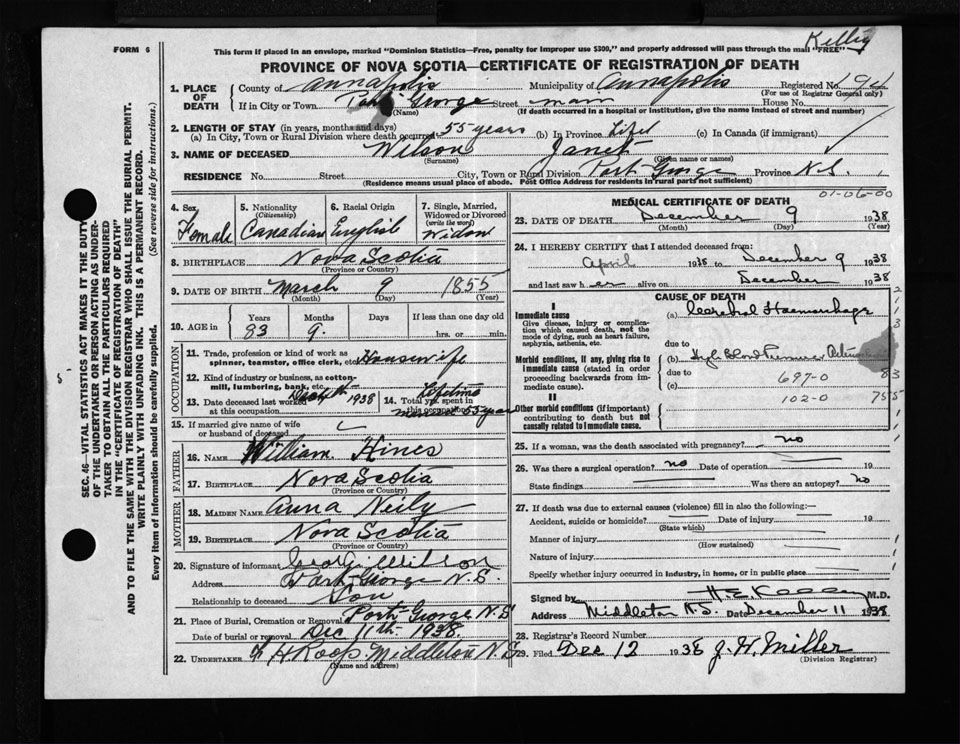 Kelley
FORM 6
This form if placed in an envelope, marked "Dominion Statistics—Free, penalty for improper use $300," and properly addressed will pass through the mail "FREE"
PROVINCE OF NOVA SCOTIA—CERTIFICATE OF REGISTRATION OF DEATH
1. PLACE OF DEATH
County of Annapolis Municipality of Annapolis Registered No. 194
(For use of Registrar General only)
If in City or Town Port George Street main House No.
(Name) (If death occurred in a hospital or institution, give the name instead of street and number)
2. LENGTH OF STAY (in years, months and days)
(a) In City, Town or Rural Division where death occurred 55 years (b) In Province Life (c) In Canada (if immigrant)
3. NAME OF DECEASED Wilson Janet
(Surname) (Given name or names)
RESIDENCE No. Street City, Town or Rural Division Port George Province N.S.
(Residence means usual place of abode. Post Office Address for residents in rural parts not sufficient)
01-06-00
4. Sex Female
5. Nationality (Citizenship) Canadian
6. Racial Origin English
7. Single, Married, Widowed or Divorced (write the word) Widow
8. BIRTHPLACE Nova Scotia
(Province or Country)
9. DATE OF BIRTH March 9 1855
(Month) (Day) (Year)
10. AGE in Years Months Days If less than one day old
83 9 hrs. or min.
OCCUPATION
11. Trade, profession or kind of work as spinner, teamster, office clerk, etc. Housewife
12. Kind of industry or business, as cotton-mill, lumbering, bank, etc.
13. Date deceased last worked at this occupation 1938
14. Total yrs. spent in this occupation Lifetime
married 55 years
15. If married give name of wife or husband of deceased
FATHER
16. NAME William Hines
17. BIRTHPLACE Nova Scotia
(Province or Country)
MOTHER
18. MAIDEN NAME Anna Neily
19. BIRTHPLACE Nova Scotia
(Province or Country)
20. Signature of informant Wilson
Address Port George N.S.
Relationship to deceased Son
21. Place of Burial, Cremation or Removal Port George N.S
Date of burial or removal Dec 11th. 1938
22. UNDERTAKER H Roop Middleton N.S
(Name and address)
MEDICAL CERTIFICATE OF DEATH
23. DATE OF DEATH December 9 1938
(Month) (Day) (Year)
24. I HEREBY CERTIFY that I attended deceased from:
April 1938 to December 9 1938
and last saw her alive on December 1938
CAUSE OF DEATH
I
Immediate cause
Give disease, injury or complication which caused death, not the mode of dying, such as heart failure, asphyxia, asthenia, etc.
(a) Cerebral Haemorrhage
due to
Morbid conditions, if any, giving rise to immediate cause (stated in order proceeding backwards from immediate cause).
(b) High Blood Pressure
due to
(c)
697-0 83
102-0 755
II
Other morbid conditions (if important) contributing to death but not causally related to immediate cause.
25. If a woman, was the death associated with pregnancy? no
26. Was there a surgical operation? no Date of operation 19
State findings Was there an autopsy? no
27. If death was due to external causes (violence) fill in also the following:—
Accident, suicide or homicide? Date of injury 19
(State which)
Manner of injury
(How sustained)
Nature of injury
Specify whether injury occurred in industry, in home, or in public place
Signed by H E Kelley M.D.
Address Middleton N.S. Date December 11 1938
28. Registrar's Record Number
29. Filed Dec 12 1938 J. H. Miller
(Division Registrar)
SEC. 46—VITAL STATISTICS ACT MAKES IT THE DUTY
OF THE UNDERTAKER OR PERSON ACTING AS UNDER-
TAKER TO OBTAIN ALL THE PARTICULARS REQUIRED
IN THE "CERTIFICATE OF REGISTRATION OF DEATH"
AND TO FILE THE SAME WITH THE DIVISION REGISTRAR WHO SHALL ISSUE THE BURIAL PERMIT.
WRITE PLAINLY WITH UNFADING INK. THIS IS A PERMANENT RECORD.
Every item of information should be carefully supplied. (See reverse side for instructions.)